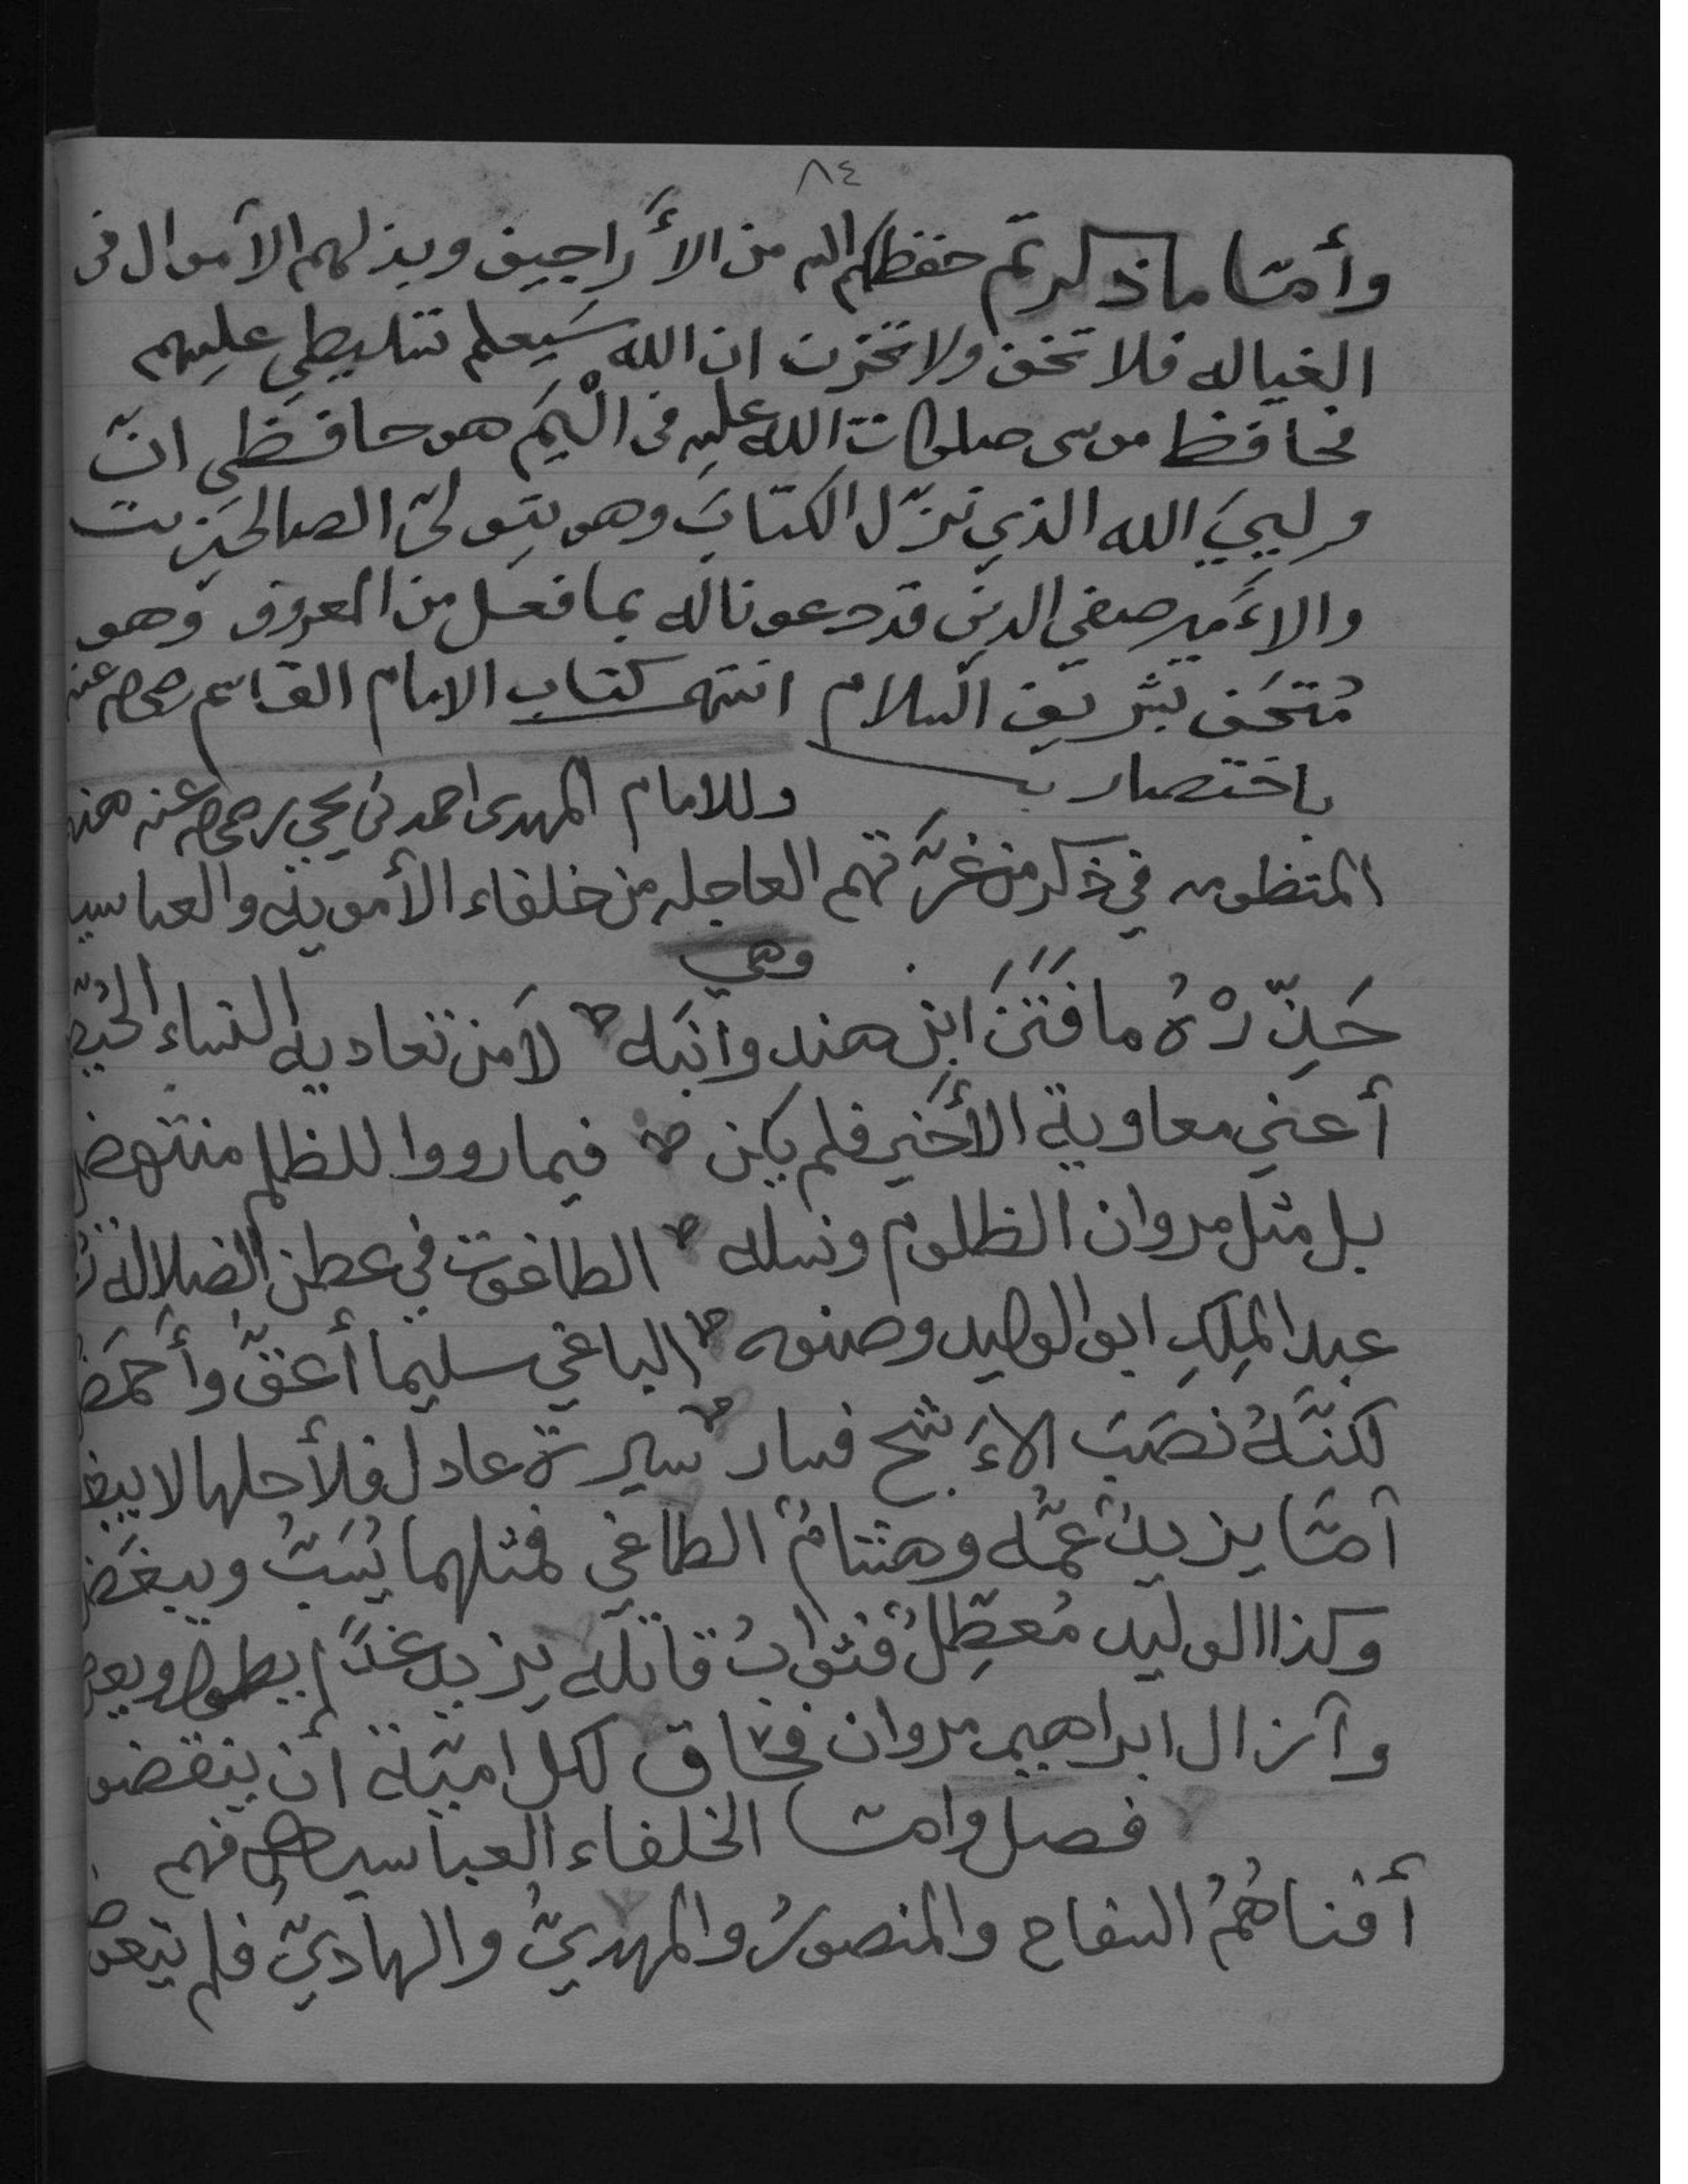 ٨٤
وأمّا ما ذكرتم حفظكم الله من الأراجيف وبذلهم الاموال فى
الغياله فلا تخف ولا تحزن ان الله سيعلم تسليطي عليهم
فحافظ موسى صلوات الله عليه فى الْيَمّ هو حافظي انّ
ولييَ الله الذي نزّل الكتابَ وهو يتولىّ الصالحين
والأمير صفي الدين قد دعونا له بما فعل من المعروف وهو
مُتحَف بشريف السلام انتهى كتاب الامام القاسم
باختصار وللامام المهدى احمد بن يحيى هذه
المنظومه في ذكر من غرّتهم العاجله من خلفاء الأمويه والعباسيه
وهي
ما فَتَنَ ابن هند وابنَه لا من تعاديه النساء الحُيّض
أعني معاوية الأخير فلم يكن فيما رووا للظلم منتهض
بل مثل مروان الظلوم ونسله الطاغوت في عطن الضلاله
عبد المَلِكِ ابو الوليد وصنوه الباغي سليما أعقّ وأحمض
لكنّهُ نصَبَ الأشج فسار سيرة عادل فلأجلها لا يبغض
أمّا يزيدُ عمّه وهشامُ الطاغي فمثلهما يُسَبّ ويبغَض
وكذا الوليد مُعطِّلٌ فثوابُ قاتله يزيد غداً
وآزال ابراهيم مروان فحاق لكل اميّة أن ينقضو
فصل وامّا الخلفاء العباسيه فهم
أفناهُمُ السفاح والمنصورُ والمهديّ والهاديّ فلم